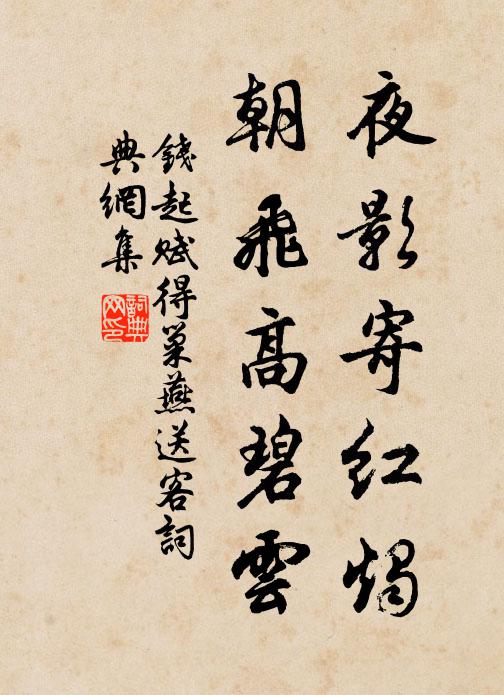 夜影寄紅燭
朝飛高碧雲
錢起賦得巢燕送客詞
典網集
詞典网印